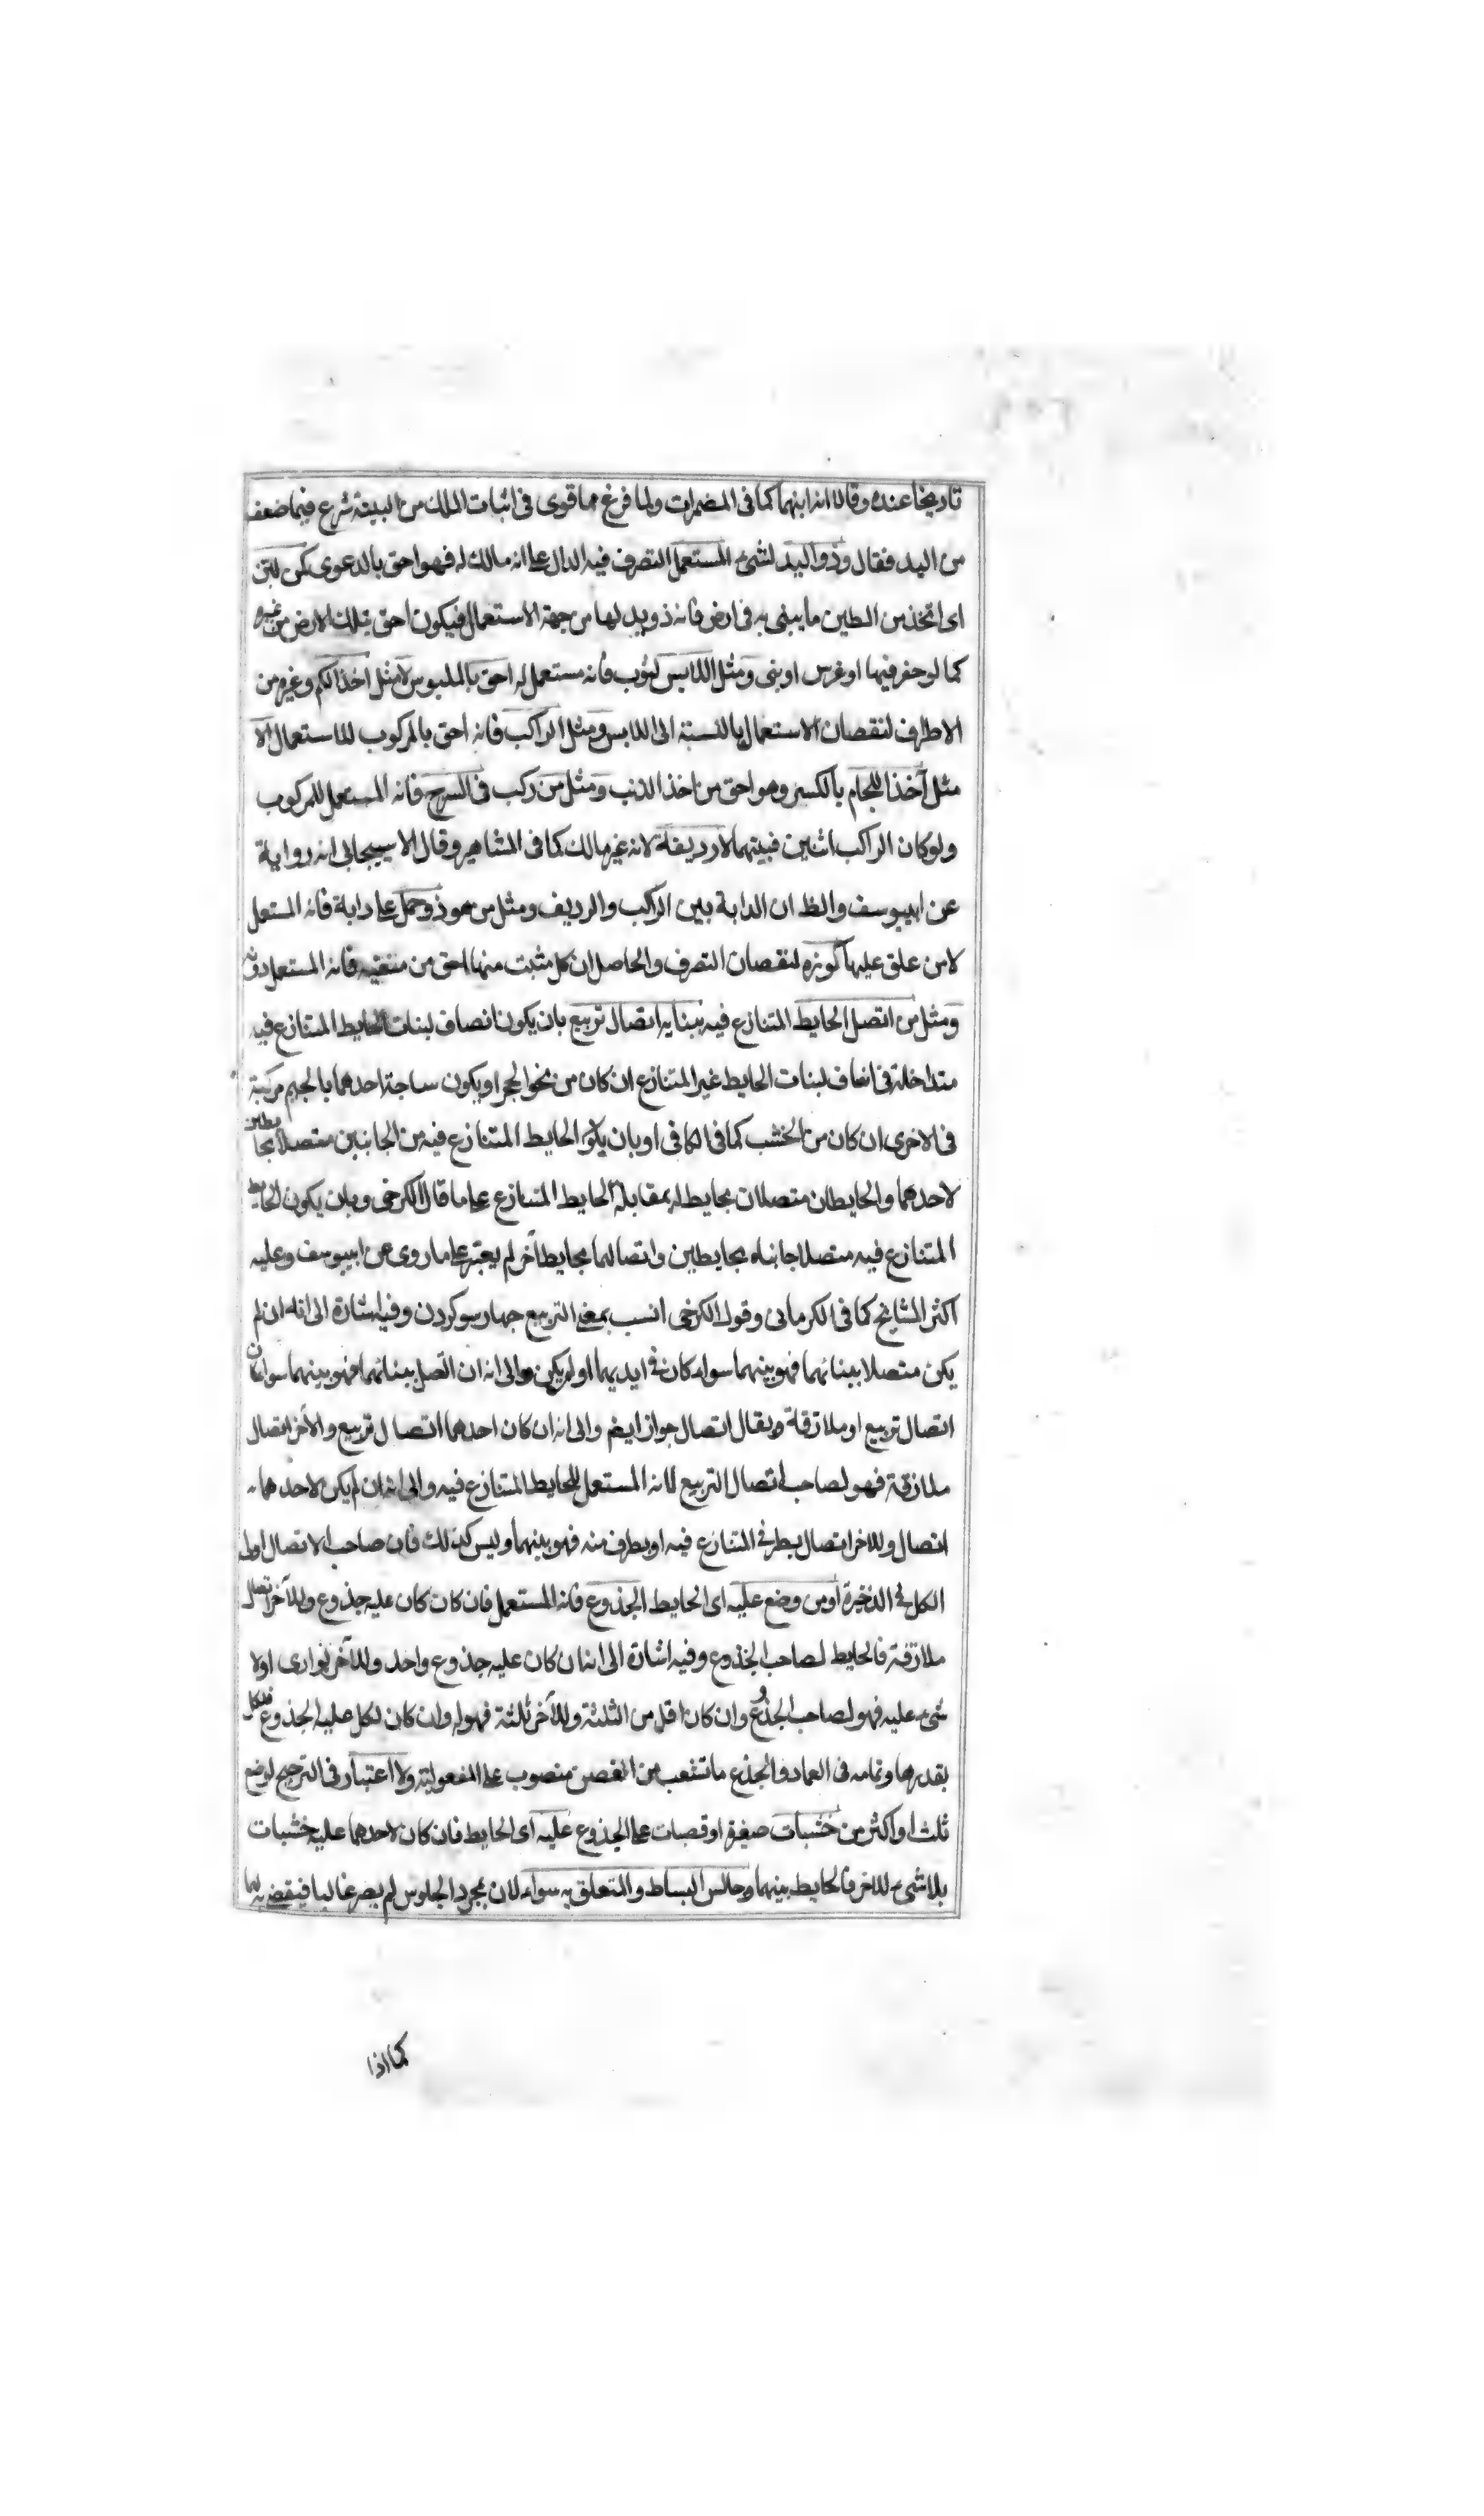 تاريخا عنده وقالا انه ابنهما كما فى المضمرات ولما فرغ مما قوى فى اثبات الملك من البينة شرع فيما ضعف
من اليد فقال وذو اليد لشئ المستعمل التصرف فيه الدال على انه مالك له فهو احق بالدعوى كمن لبّن
اى اتخذ من الطين ما يبنى به فى ارض فانه ذو يد لها من جهة الاستعمال فيكون احق بتلك الارض من غيره
كما لو حفر فيها او غرس او بنى ومثل اللابس لثوب فانه مستعمل له احق بالملبوس لا مثل اخذ الكم وغيره من
الاطراف لنقصان الاستعمال بالنسبة الى اللابس ومثل الراكب فانه احق بالمركوب للاستعمال لا
مثل آخذ اللجام بالكسر وهو احق من اخذ الذنب ومثل من ركب فى السرج فانه المستعمل للمركوب
ولو كان الراكب اثنين فبينهما لا رديفه لانه غير مالك كما فى المشاهير وقال الاسبيجابى انه رواية
عن ابييوسف والظ ان الدابة بين الراكب والرديف ومثل من هو ذو حمل على دابة فانه المستعمل
لا من علق عليها كوزه لنقصان التصرف والحاصل ان كل مثبت منها احق من منفيه فانه المستعمل دونه
ومثل من اتصل الحايط المتنازع فيه ببنايه اتصال تربيع بان يكون انصاف لبنات الحايط المتنازع فيه
متداخلة فى انصاف لبنات الحايط غير المتنازع ان كان من نحو الحجر او يكون ساجة احدهما بالجيم مركبة
فى الاخرى ان كان من الخشب كما فى الكافى او بان يكون الحايط المتنازع فيه من الجانبين متصلا بحايطين
لاحدهما والحايطان متصلان بحايط له بمقابلة الحايط المتنازع على ما قال الكرخى وبان يكون الحايط
المتنازع فيه متصلا جانباه بحايطين واتصالهما بحايط آخر لم يعتبر على ما روى عن ابييوسف وعليه
اكثر المشايخ كما فى الكرمانى وقول الكرخى انسب بمعنى التربيع جهار سو كردن وفيه اشارة الى انه ان لم
يكن متصلا ببنائهما فهو بينهما سواء كان فى ايديهما او لم يكن والى انه ان اتصل ببنائهما فهو بينهما سواء كان
اتصال تربيع او ملازقة ويقال اتصال جواز ايضم والى انه ان كان احدهما اتصال تربيع والآخر اتصال
ملازقة فهو لصاحب اتصال التربيع لانه المستعمل للحايط المتنازع فيه والى انه ان لم يكن لاحدهما
اتصال وللاخر اتصال بطرفى المتنازع فيه او بطرف منه فهو بينهما وليس كذلك فان صاحب الاتصال اولى
الكل فى الذخيرة او من وضع عليه اى الحايط الجذوع فانه المستعمل فان كان كان عليه جذوع وللآخر اتصال
ملازقة فالحايط لصاحب الجذوع وفيه اشارة الى انه ان كان عليه جذوع واحد وللآخر بوارى اولا
شئ عليه فهو لصاحب الجذوع وان كان اقل من الثلثة وللآخر ثلثة فهو له وان كان لكل عليه الجذوع فلكل
بقدرها وتمامه فى العمادى والجذع ما تشعب من الغصن منصوب على المفعولية ولا اعتبار فى الترجيح لوضع
ثلث او اكثر من خشبات صغيرة او قصبات على الجذوع عليه اى الحايط فان كان لاحدهما عليه خشبات
بلا شئ للاخر فالحايط بينهما وجالس البساط والمتعلق به سواء لان بمجرد الجلوس لم يصر غالبا فيقضى به لهما
كما اذا